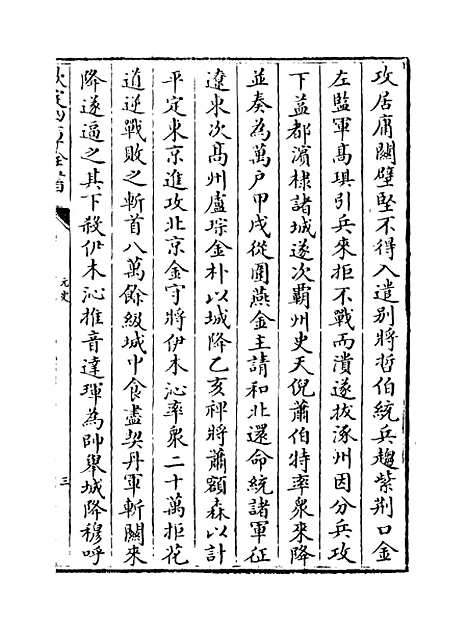 攻居庸關壁堅不得入遣别將哲伯統兵趨紫荆口金
左監軍髙琪引兵来拒不戰而潰遂拔涿州因分兵攻
下益都濱棣諸城遂次霸州史天倪蕭伯特率衆来降
並奏為萬户甲戌從圍燕金主請和北還命統諸軍征
遼東次髙州盧琮金朴以城降乙亥裨將蕭額森以計
平定東京進攻北京金守將伊木沁率衆二十萬拒花
道逆戰敗之斬首八萬餘級城中食盡契丹軍斬關來
降遂逼之其下殺伊木沁推音達琿為帥舉城降穆呼
元史
三